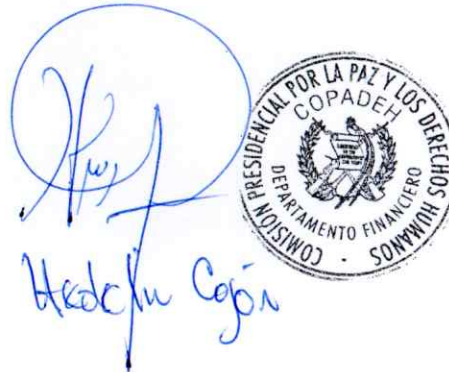 COMISIÓN PRESIDENCIAL POR LA PAZ Y LOS DERECHOS HUMANOS
COPADEH
DEPARTAMENTO FINANCIERO
Cojón